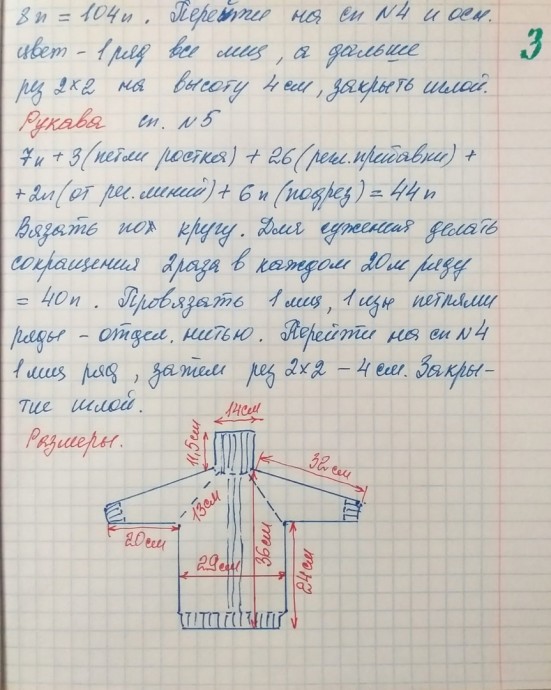 8п = 104п. Перейти на сп N4 и осн.
цвет - 1 ряд все лиц, а дальше
рез 2x2 на высоту 4см, закрыть иглой.
3
Рукава сп. N5
7п + 3 (петли ростка) + 26 (регл. прибавки) +
+ 2п (от рег. линий) + 6п (подрез) = 44п
Вязать по кругу. Для сужения делать
сокращения 2 раза в каждом 20м ряду
= 40п. Провязать 1 лиц, 1 изн петлями
ряды - отдел. нитью. Перейти на сп N4
1 лиц ряд, затем рез 2x2 - 4 см. Закры-
тие иглой.
Размеры.
14см
11,5см
32см
13см
20см
36см
29см
24см